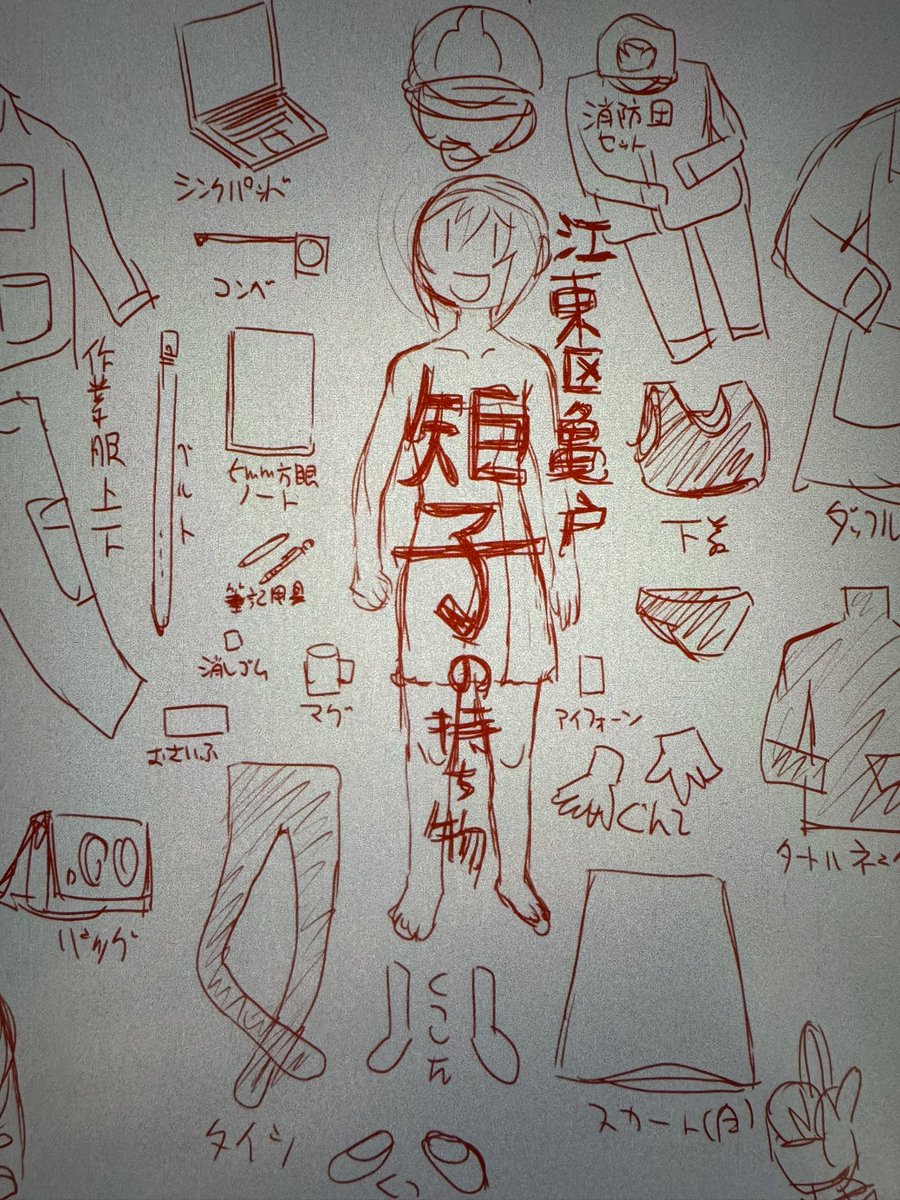 江東区亀戸
矩子の持ち物
消防団
セット
シンクパッド
コンベ
作業服上下
ベルト
5mm方眼
ノート
筆記用具
消しゴム
マグ
おさいふ
バッグ
タイツ
くつした
くつ
下着
ダッフル
アイフォーン
ぐんて
タートルネック
スカート(白)